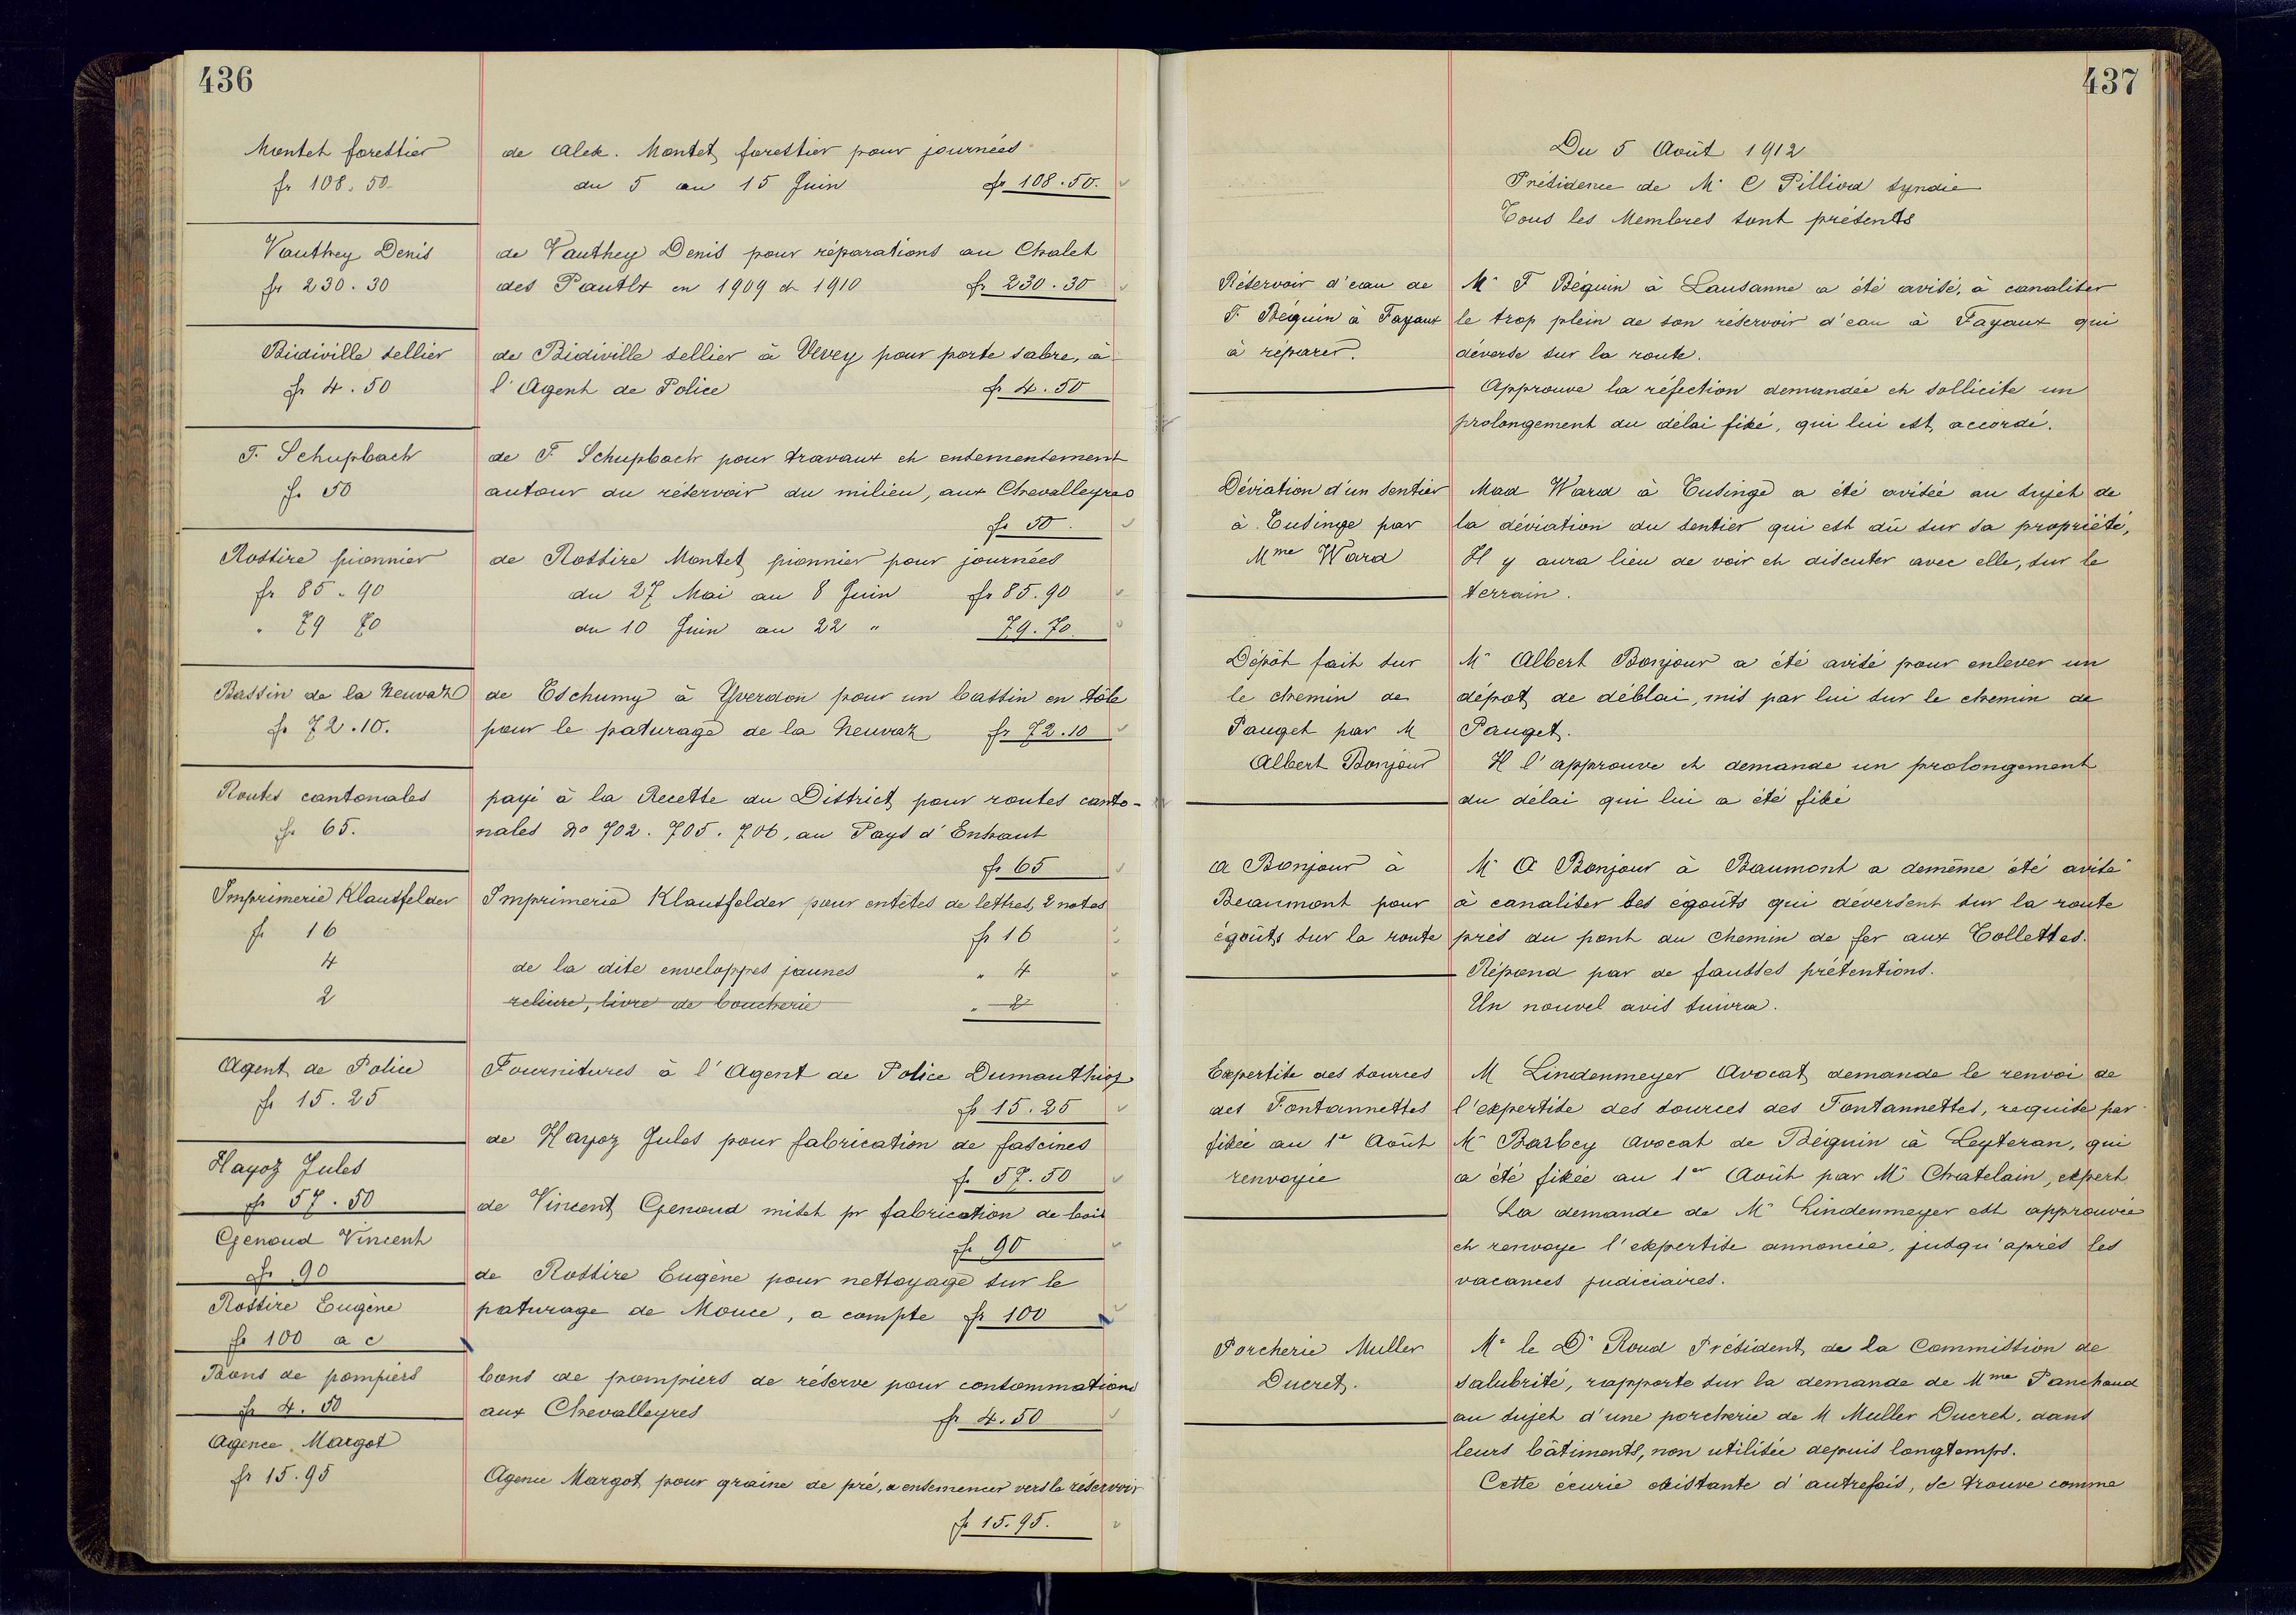 436
Montet forestier
fr 108.50
de Alex. Montet forestier pour journées
du 5 au 15 Juin fr 108.50.
Vauthey Denis
fr 230.30
de Vauthey Denis pour réparations au Chalet
des Pautex en 1909 et 1910 fr 230.30
Bidiville sellier
fr 4.50
de Bidiville sellier à Vevey pour porte sabre, à
l'Agent de Police fr 4.50
F. Schupbach
fr 50
de F Schupbach pour travaux et ensemensement
autour du réservoir du milieu, aux Chevalleyres
fr 50.
Rossire pionnier
fr 85.90
" 79 70
de Rossire Montet pionnier pour journées
du 27 Mai au 8 Juin fr 85.90
du 10 Juin au 22 " 79.70
Bassin de la Neuvaz
fr 72.10.
de Eschumy à Yverdon pour un bassin en tôle
pour le paturage de la Neuvaz fr 72.10
Routes cantonales
fr 65.
payé à la Recette du District pour routes canto-
nales No 702. 705. 706, au Pays d'Enhaut
fr 65
Imprimerie Klausfelder
fr 16
4
2
Imprimerie Klausfelder pour entêtes de lettres, 2 notes
fr 16
de la dite enveloppes jaunes " 4
reliure, livre de boucherie " 2
Agent de Police
fr 15.25
Fournitures à l'Agent de Police Dumauthioz
fr 15.25
Hayoz Jules
fr 57.50
de Hayoz Jules pour fabrication de fascines
fr 57.50
Genoud Vincent
fr 90
de Vincent Genoud miset pr fabrication de bois
fr 90
Rossire Eugène
fr 100 a c
de Rossire Eugène pour nettoyage sur le
paturage de Mouce, a compte fr 100
Bons de pompiers
fr 4.50
bons de pompiers de réserve pour consommations
aux Chevalleyres fr 4.50
Agence Margot
fr 15.95
Agence Margot pour graine de pré, a ensemencer vers le réservoir
fr 15.95.
437
Du 5 Août 1912
Présidence de Mr C Pilliod syndic
Tous les Membres sont présents
Réservoir d'eau de
F. Béguin à Fayaux
à réparer.
Mr F Béguin à Lausanne a été avisé, à canaliser
le trop plein de son réservoir d'eau à Fayaux qui
déverse sur la route.
Approuve la réfection demandée et sollicite un
prolongement du délai fixé, qui lui est accordé.
Déviation d'un sentier
à Tusinge par
Mme Ward
Mad Ward à Tusinge a été avisée au sujet de
la déviation du sentier qui est dû sur sa propriété,
Il y aura lieu de voir et discuter avec elle, sur le
terrain.
Dépôt fait sur
le chemin de
Pauget par M
Albert Bonjour
Mr Albert Bonjour a été avisé pour enlever un
dépot de déblai, mis par lui sur le chemin de
Pauget.
Il l'approuve et demande un prolongement
du délai qui lui a été fixé
A Bonjour à
Beaumont pour
égoûts sur la route
Mr A Bonjour à Baumont a demême été avisé
à canaliser les égoûts qui déversent sur la route
près du pont du chemin de fer aux Tollettes.
Répond par de fausses prétentions.
Un nouvel avis suivra.
Expertise des sources
des Fontannettes
fixée au 1er Août
renvoyée
M Lindenmeyer Avocat demande le renvoi de
l'expertise des sources des Fontannettes, requise par
Mr Barbey Avocat de Béguin à Leyteran, qui
a été fixée au 1er Août par Mr Chatelain, expert
La demande de Mr Lindenmeyer est approuvée
et renvoye l'expertise annoncée, jusqu'après les
vacances judiciaires.
Porcherie Muller
Ducret.
Mr le Dr Roud Président de la Commission de
salubrité, rapporte sur la demande de Mme Panchaud
au sujet d'une porcherie de M Muller Ducret, dans
leurs bâtiments, non utilisée depuis longtemps.
Cette écurie existante d'autrefois, se trouve comme